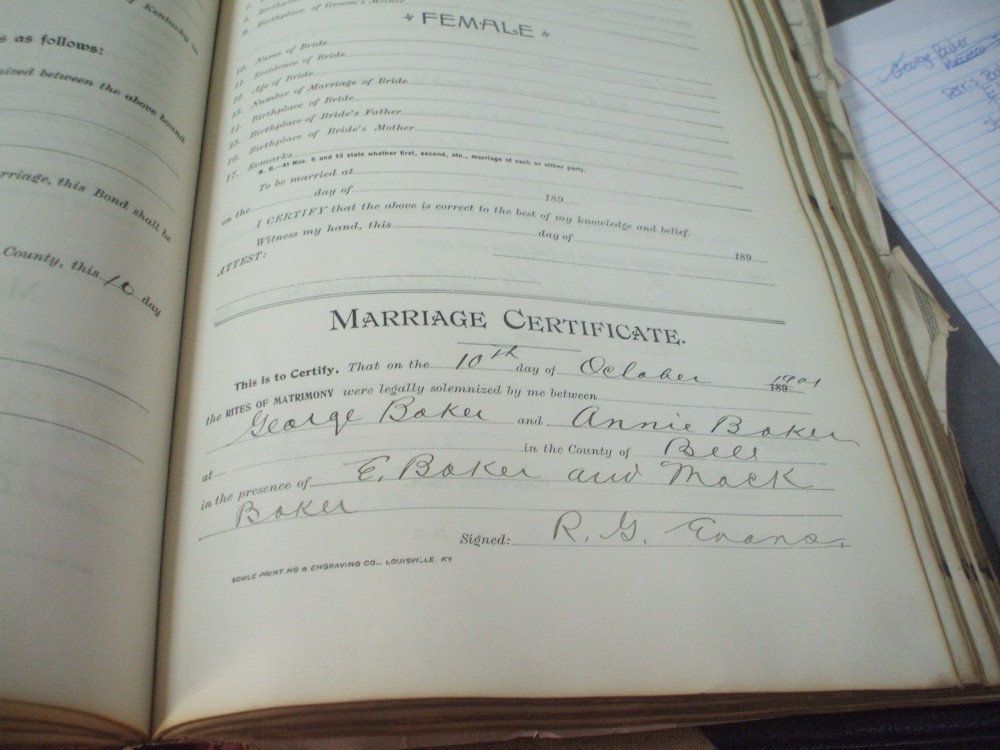 of Kentucky in
s as follows:
nized between the above bound
rriage, this Bond shall be
County, this 10 day
8. Birthplace of Groom's Mother
FEMALE
10. Name of Bride
11. Residence of Bride
12. Age of Bride
13. Number of Marriage of Bride
14. Birthplace of Bride
15. Birthplace of Bride's Father
16. Birthplace of Bride's Mother
17. Remarks
N. B.—At Nos. 5 and 13 state whether first, second, etc., marriage of each or either party.
To be married at
on the day of 189
I CERTIFY that the above is correct to the best of my knowledge and belief.
Witness my hand, this day of 189
ATTEST:
MARRIAGE CERTIFICATE.
This is to Certify, That on the 10th day of October 189 1901
the RITES OF MATRIMONY were legally solemnized by me between
George Baker and Annie Baker
at in the County of Bell
in the presence of E. Baker and Mack
Baker
Signed: R. G. Evans.
PRINTING & ENGRAVING CO., LOUISVILLE, KY
George Baker